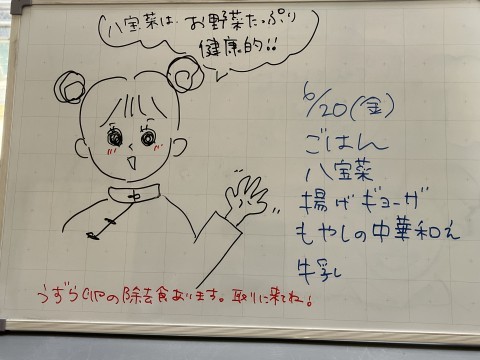 八宝菜は、お野菜たっぷり
健康的!!
6/20(金)
ごはん
八宝菜
揚げギョーザ
もやしの中華和え
牛乳
の除去食あります。取りに来てね!